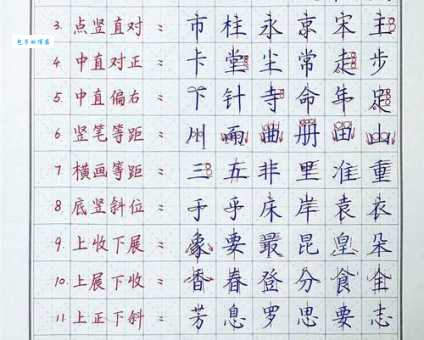 3. 点竖直对: 市 柱 永 京 宋 主
4. 中直对正: 卡 堂 尘 常 走 步
5. 中直偏右: 下 针 寺 命 年 足
6 竖笔等距: 州 雨 曲 册 田 山
7 横画等距: 三 五 非 里 准 重
8. 底竖斜位: 于 乎 床 岸 袁 衣
9. 上收下展: 象 要 最 昆 皇 朵
10. 上展下收: 香 春 登 分 食 全
11 上正下斜: 芳 息 罗 思 要 志